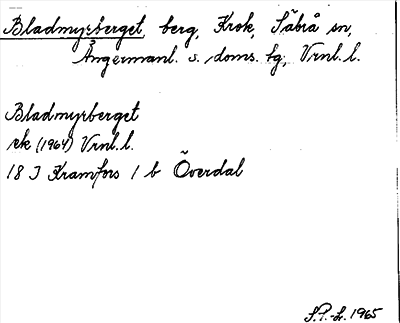 Bladmyrberget, berg, Krok, Säbrå sn,
Ångermanl. s. doms. tg, Vrnl. l.
Bladmyrberget
ek (1964) Vrnl. l.
18 J Kramfors 1 b Överdal
S.P.-St. 1965